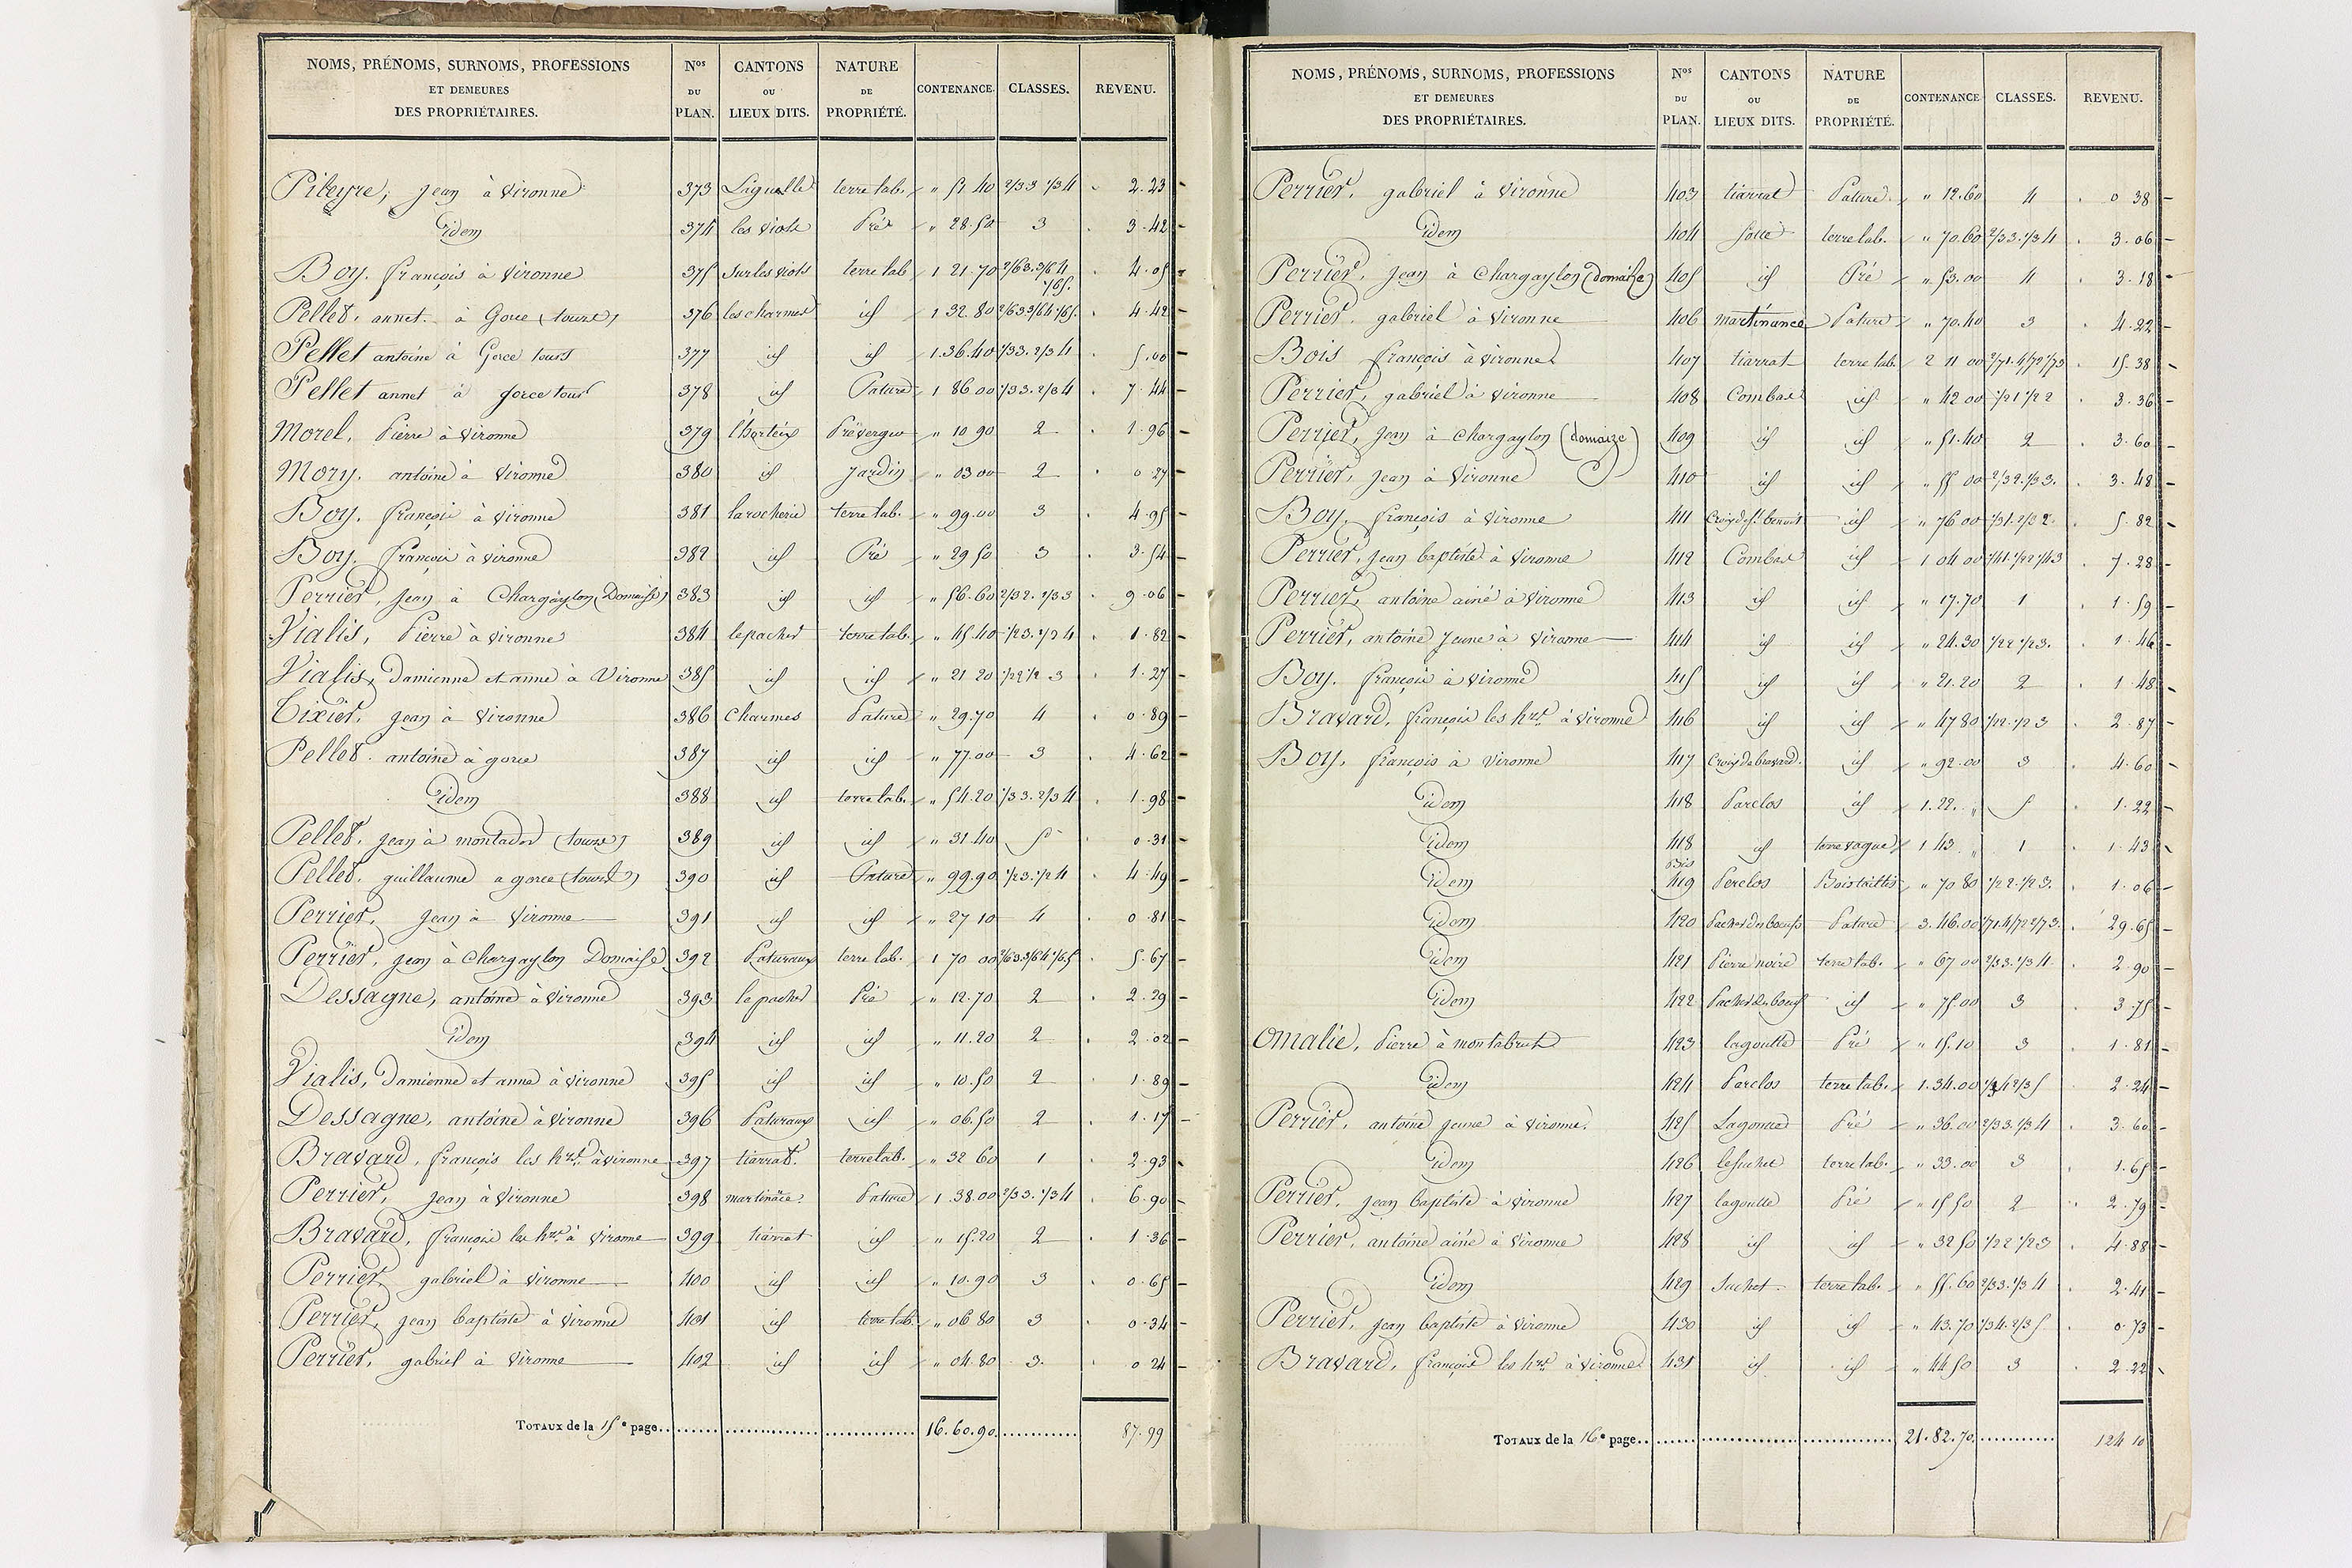 NOMS, PRÉNOMS, SURNOMS, PROFESSIONS ET DEMEURES DES PROPRIÉTAIRES. Nos DU PLAN. CANTONS OU LIEUX DITS. NATURE DE PROPRIÉTÉ. CONTENANCE. CLASSES. REVENU.
jean à Vironne 373 terre lab. " 51.40 2/33 1/34 2.23
Idem 374 les viols Pré " 28.50 3 3.42
Boy. françois à Vironne 375 sur les viols terre lab 1 21.70 2/63.3/64 1/65. 4.05
Pellet. annet. à Gorce (tours) 376 les charmes id 1 32.80 2/63 3/64 1/65. 4.42
Pellet antoine à Gorce tours 377 id id 1.36.40 1/33.2/34 5.00
Pellet annet à gorce tours 378 id Pature 1 86 00 1/33.2/34 7.44
Morel, Pierre à Vironne 379 Préverger " 10 90 2 1.96
Mory. antoine à Vironne 380 id Jardin " 03 00 2 0 27
Boy. françois à Vironne 381 larocherie terre lab. " 99.00 3 4.95
Boy. françois à vironne 382 id Pré " 29 50 3 3.54
Perrier, jean à Chargaylon (Domaise) 383 id id " 56.60 2/32.1/33 9.06
Vialis, Pierre à vironne 384 lepacher terre lab. " 45.40 1/23.1/24 1.82
Vialis, Damienne et anne à Vironne 385 id id " 21 20 1/22 1/2 3 1.27
Tixier, jean à Vironne 386 Charmes Pature " 29.70 4 0.89
Pellet. antoine à gorce 387 id id " 77.00 3 4.62
Idem 388 id terre lab. " 54.20 1/33.2/34 1.98
Pellet, jean à montador (tours) 389 id id " 31.40 5 0.31
Pellet, guillaume a gorce (tours) 390 id Pature " 99.90 1/23.1/24 4.49
Perrier, jean à Vironne 391 id id " 27 10 4 0 81
Perrier, jean à Chargaylon Domaise 392 Paturaux terre lab. 1 70 00 2/63.3/64 1/65 5.67
Dessagne, antoine à Vironne 393 le pacher Pré " 12.70 2 2.29
Idem 394 id id " 11.20 2 2.02
Vialis, Damienne et anne à Vironne 395 id id " 10.50 2 1.89
Dessagne, antoine à Vironne 396 Paturaux id " 06.50 2 1.17
Bravard, françois les hrs à vironne 397 tiarrat. terre lab. " 32 60 1 2.93
Perrier, jean à Vironne 398 martinace. Pature 1 38.00 2/33.1/34 6.90
Bravard, françois les hrs à Vironne 399 tiarrat id " 15.20 2 1.36
Perrier, gabriel à Vironne 400 id id " 10.90 3 0.65
Perrier, jean baptiste à Vironne 401 id terre lab. " 06 80 3 0.34
Perrier, gabriel à Vironne 402 id id " 04.80 3. 0 24
TOTAUX de la 15e page 16.60.90. 87.99
NOMS, PRÉNOMS, SURNOMS, PROFESSIONS ET DEMEURES DES PROPRIÉTAIRES. Nos DU PLAN. CANTONS OU LIEUX DITS. NATURE DE PROPRIÉTÉ. CONTENANCE CLASSES. REVENU.
Perrier, gabriel à Vironne 403 tiarrat Pature " 12.60 4 0 38
Idem 404 terre lab. " 70.60 2/33.1/34 3.06
Perrier, jean à Chargaylon (domaize) 405 id Pré " 53.00 4 3.18
Perrier, gabriel à Vironne 406 martinance Pature " 70.40 3 4.22
Bois françois à Vironne 407 tiarrat terre lab. 2 11 00 2/71.4/72 1/73 15.38
Perrier, gabriel à Vironne 408 Combas id " 42 00 1/21 1/22 3.36
Perrier, Jean à Chargaylon (domaize) 409 id id " 51.40 2 3.60
Perrier, Jean à Vironne 410 id id " 55 00 2/32.1/33. 3.48
Boy, françois à Vironne 411 Croix de st. benoit id " 76 00 1/31.2/32. 5.82
Perrier, jean baptiste à Vironne 412 Combas id 1 04 00 1/41.1/22 1/43 7.28
Perrier, antoine ainé à Vironne 413 id id " 17.70 1 1.59
Perrier, antoine jeune à Vironne 414 id id " 24.30 1/22 1/23. 1 46
Boy. françois à vironne 415 id id " 21.20 2 1.48
Bravard, françois les hrs à vironne 416 id id " 47 80 1/22.1/23 2.87
Boy, françois à Vironne 417 Croix de bravard. id " 92.00 3 4.60
Idem 418 Parclos id 1.22. " 5 1.22
Idem 418 bis id terre vague 1 43 " 1 1.43
Idem 419 Perclos Bois taillis " 70 80 1/22.1/23. 1.06
Idem 420 Pacher des boeufs Pature 3.46.00 1/71.4/72 2/73. 29.65
Idem 421 Pierre noire terre lab. " 67 00 2/33.1/34 2.90
Idem 422 Pacher des boeufs id " 75.00 3 3.75
Omalie, Pierre à montabrut 423 lagoutte Pré " 15.10 3 1.81
Idem 424 Parclos terre lab. 1.34.00 2.24
Perrier, antoine jeune à Vironne. 425 Pré " 36.00 2/33.1/34 3.60
Idem 426 lesuchet terre lab. " 33.00 3 1.65
Perrier, jean baptiste à Vironne 427 lagoutte Pré " 15 50 2 2.79
Perrier, antoine ainé à Vironne 428 id id " 32 50 1/22 1/23 4.88
Idem 429 Suchet terre lab. " 55.60 2/33.1/34 2.41
Perrier, jean baptiste à Vironne 430 id id " 43.70 1/34.2/35. 0.73
Bravard, françois les hrs à vironne 431 id id " 44 50 3 2.22
TOTAUX de la 16e page 21.82.70. 124 10